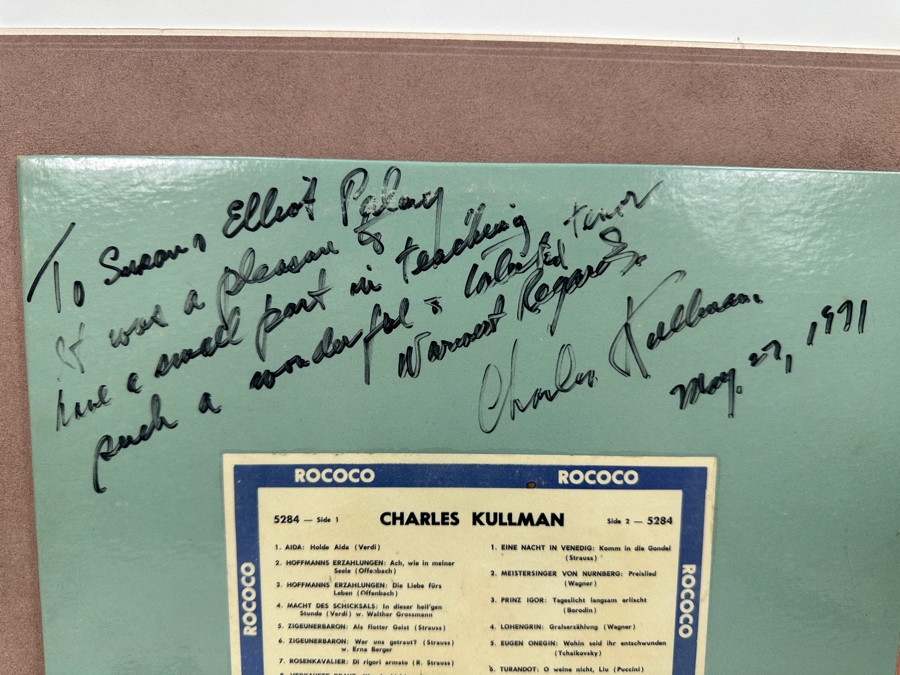 To Susan & Elliot Palay
it was a pleasure to
have a small part in teaching
such a wonderful & talented tenor
Warmest Regards
Charles Kullman.
May. 27, 1971
ROCOCO ROCOCO
5284 — Side 1 CHARLES KULLMAN Side 2 — 5284
1. AIDA: Holde Aida (Verdi)
2. HOFFMANNS ERZAHLUNGEN: Ach, wie in meiner
Seele (Offenbach)
3. HOFFMANNS ERZAHLUNGEN: Die Liebe fürs
Leben (Offenbach)
4. MACHT DES SCHICKSALS: In dieser heil'gen
Stunde (Verdi) w. Walther Grossmann
5. ZIGEUNERBARON: Als flotter Geist (Strauss)
6. ZIGEUNERBARON: Wer uns getraut? (Strauss)
w. Erna Berger
7. ROSENKAVALIER: Di rigori armato (R. Strauss)
1. EINE NACHT IN VENEDIG: Komm in die Gondel
(Strauss)
2. MEISTERSINGER VON NURNBERG: Preislied
(Wagner)
3. PRINZ IGOR: Tageslicht langsam erlischt
(Borodin)
4. LOHENGRIN: Gralserzählung (Wagner)
5. EUGEN ONEGIN: Wohin seid ihr entschwunden
(Tchaikovsky)
6. TURANDOT: O weine nicht, Liu (Puccini)
ROCOCO
ROCOCO